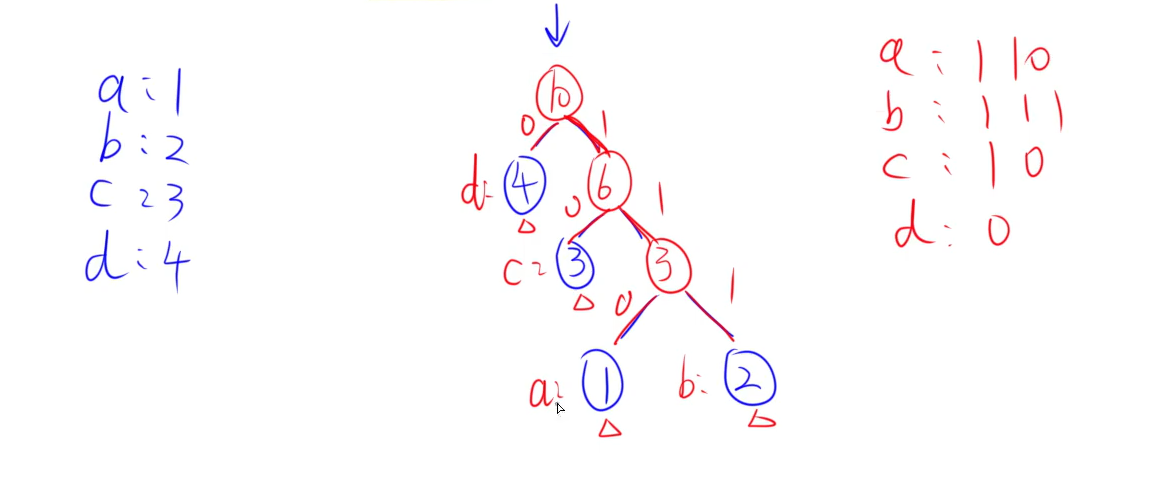 a : 1
b : 2
c : 3
d : 4
10
0 1
d: 4 6
0 1
c: 3 3
0 1
a: 1 b: 2
a : 110
b : 111
c : 10
d : 0